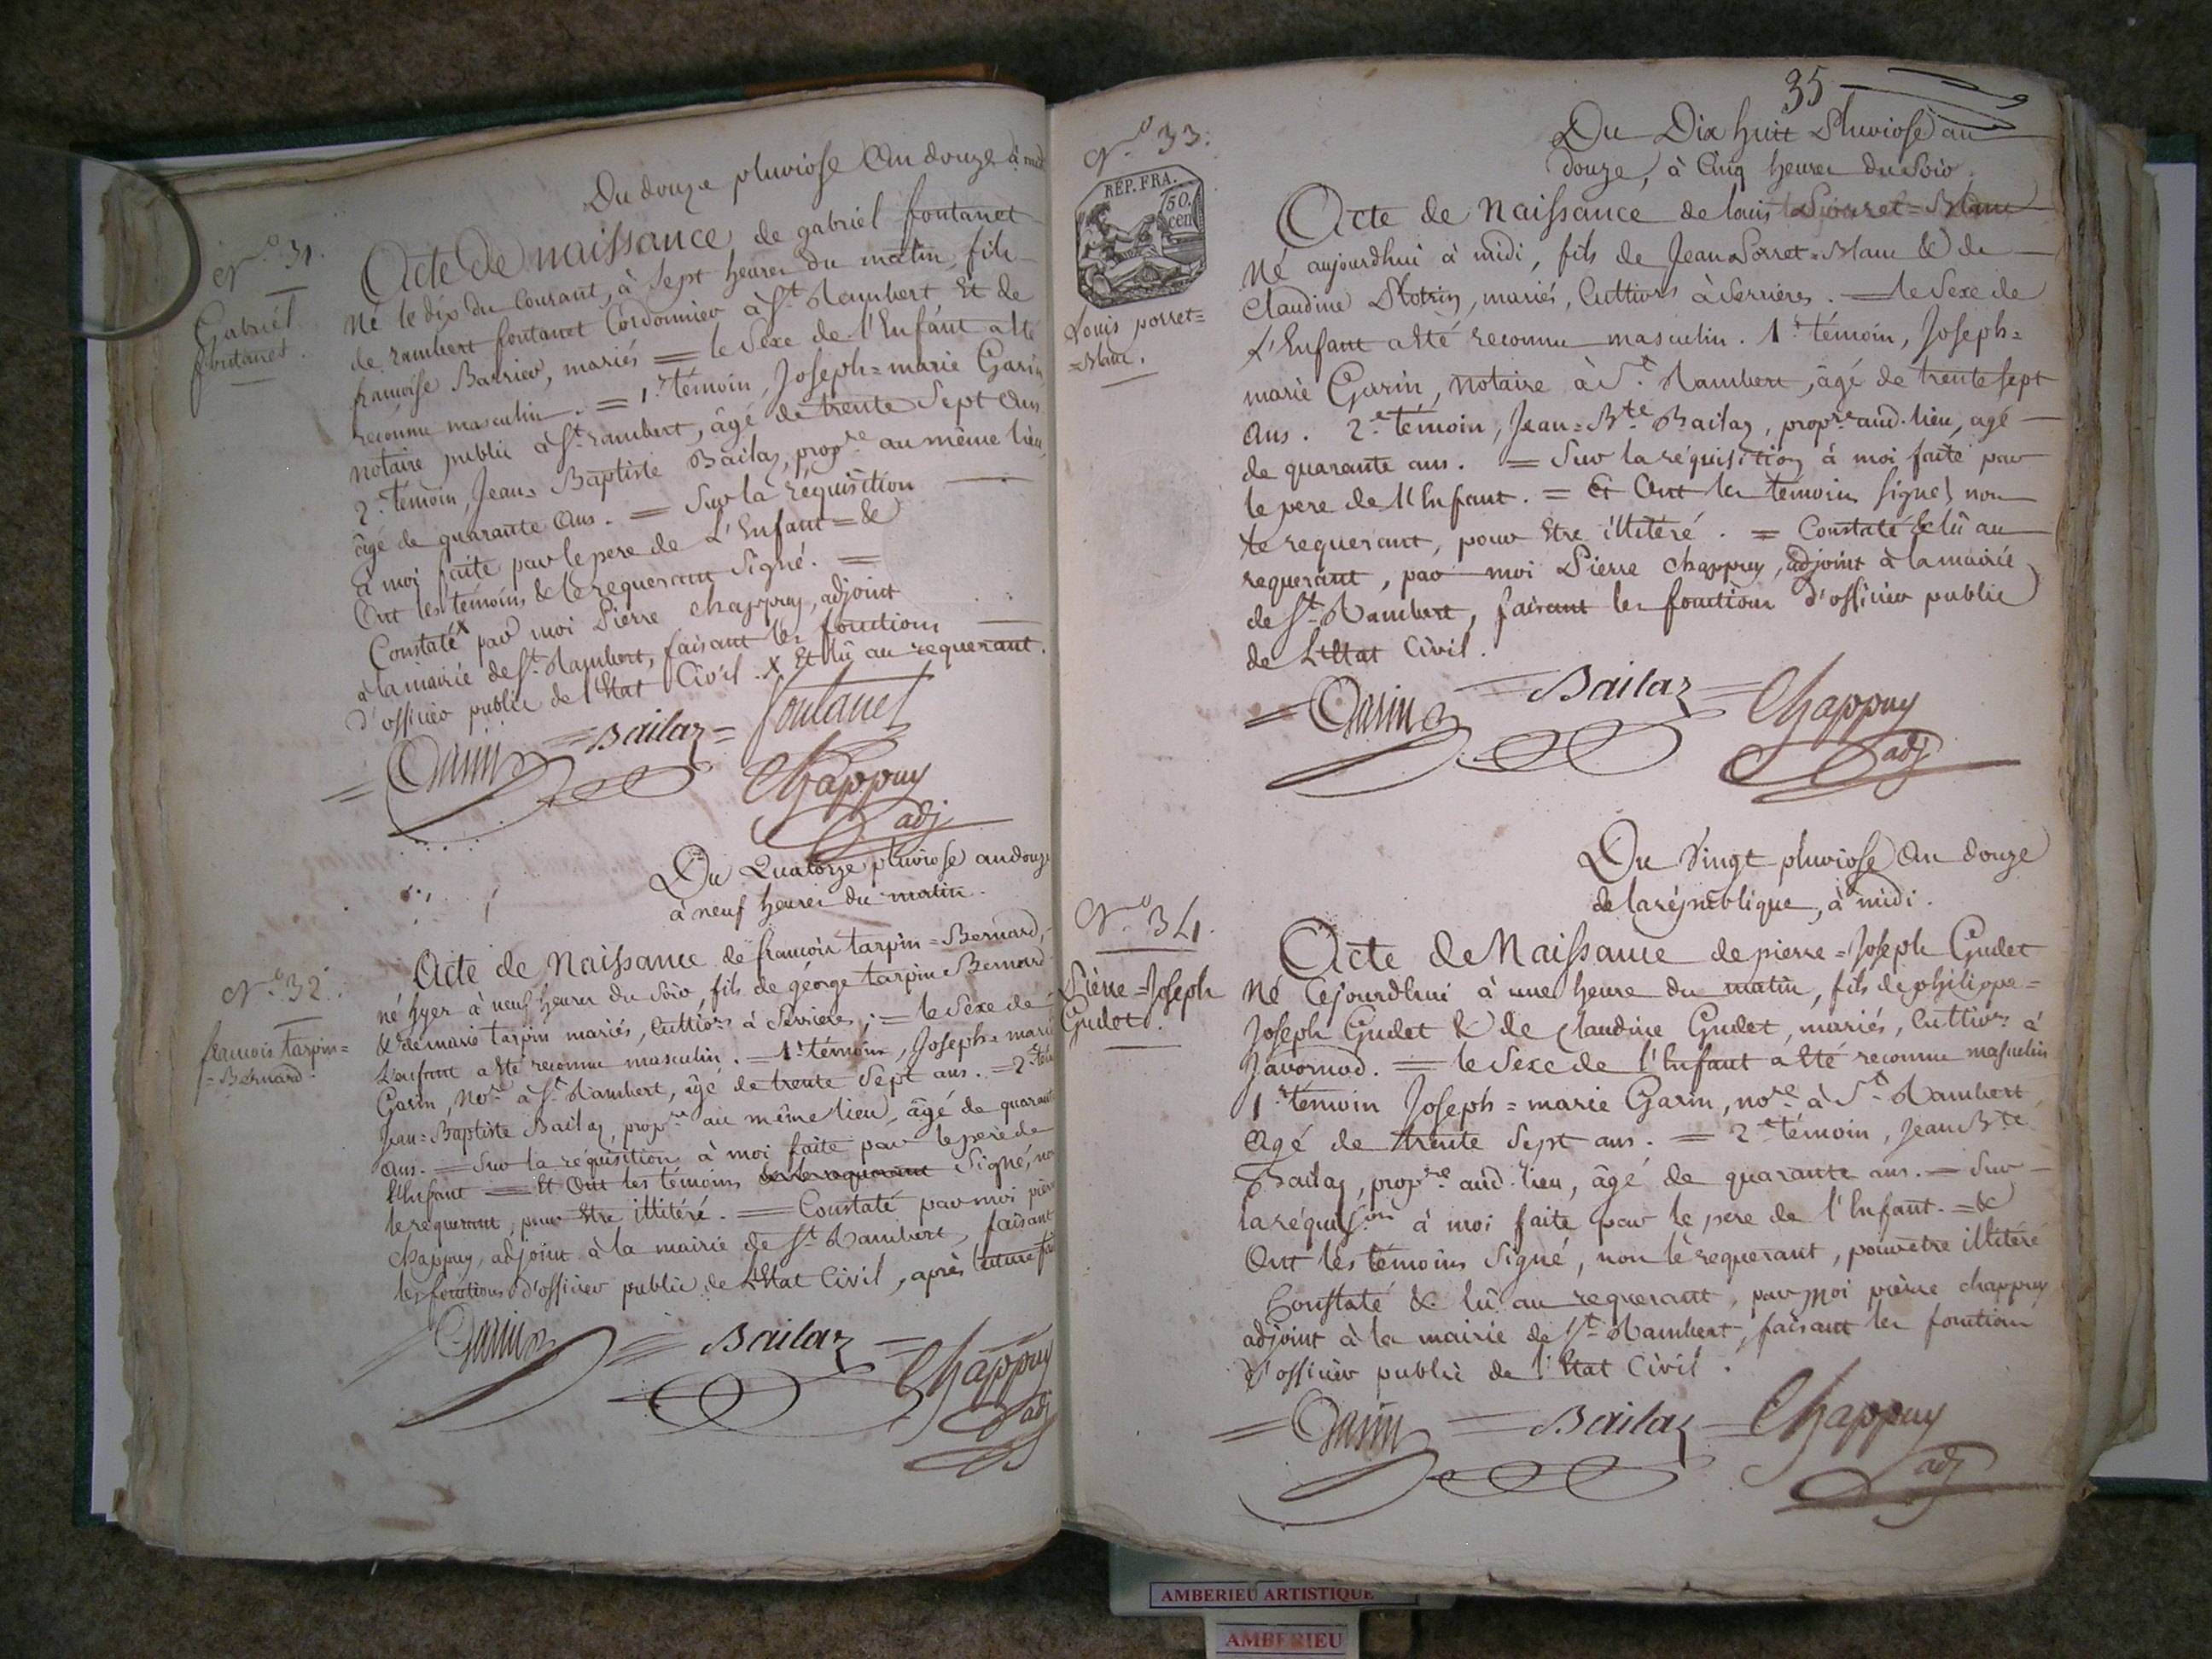 Du douze pluviose an douze à midi
N.o 31.
Gabriel
fontanet.
Acte de naissance de gabriel fontanet
né le dix du Courant, à Sept heures du matin, fils
de rambert fontanet Cordonnier à St. Rambert, Et de
françoise Barrier, mariés = le Sexe de l'Enfant a Eté
reconnu masculin. = 1.r témoin, Joseph=marie Garin,
notaire public à St. rambert, âgé de trente Sept ans
2.e témoin, Jean Baptiste Bailaz, prop.re au même lieu,
âgé de quarante ans. = Sur la réquisition
à moi faite par le pere de L'Enfant = &
Ont les témoins & le requerant Signé. =
Constaté x par moi Pierre chappuy, adjoint
à la mairie de St. Rambert, faisant les fonctions
d'officier public de l'Etat Civil. x Et lû au requerant.
= Garin = Bailaz = fontanet
Chappuy
adj
Du Quatorze pluviose an douze
à neuf heures du matin.
N.o 32.
francois tarpin=
=Bernard.
Acte de Naissance de françois tarpin=Bernard,
né hyer à neuf heures du Soir, fils de géorge tarpin Bernard
& de marie tarpin mariés, Cultiv.rs à Serrieres; = le Sexe de
L'enfant a Eté reconnu masculin. = 1.r témoin, Joseph=marie
Garin, No.re à St. Rambert, âgé de trente Sept ans. = 2.e tém
Jean=Baptiste Bailaz, prop.re au même lieu, âgé de quarante
ans. = Sur la réquisition à moi faite par le pere de
l'Enfant = Et Ont les témoins & le requerant Signé, non
le requerant, pour Etre illitéré. = Constaté par moi pierre
chappuy, adjoint à la mairie de St. Rambert, faisant
les fonctions d'officier public de L'Etat Civil, après lecture f
Garin = Bailaz = Chappuy
adj
35
N.o 33.
RÉP. FRA.
50.
cen
Louis porret=
=Blanc.
Du Dix huit Pluviose an
douze, à Cinq heures du Soir.
Acte de Naissance de louis Porret=Blanc
Né aujourdhui à midi, fils de Jean Porret=Blanc & de
Claudine mariés, Cultiv.rs à Serriéres. = le Sexe de
L'Enfant a Eté reconnu masculin. 1.r témoin, Joseph=
marie Garin, notaire à St. Rambert, âgé de trente sept
Ans. 2.e témoin, Jean=B.te Bailaz, prop.re aud. lieu, agé
de quarante ans. = Sur la réquisition à moi faite par
le pere de l'Enfant. = Et Ont les témoins signé, non
le requerant, pour Etre illitéré. = Constaté & lû au
requerant, par moi Pierre chappuy, adjoint à la mairie
de St. Rambert, faisant les fonctions d'officier public
de L'Etat Civil.
= Garin = Bailaz = Chappuy
adj
Du Vingt pluviose an douze
de la république, à midi.
N.o 34.
Piérre=Joseph
Gudet.
Acte de Naissance de pierre=Joseph Gudet
Né Cejourdhui à une heure du matin, fils de philippe=
Joseph Gudet & de Claudine Gudet, mariés, Cultiv.rs à
Javornod. = le Sexe de l'Enfant a Eté reconnu masculin
1.r témoin Joseph=marie Garin, no.re à St. Rambert
Agé de trente Sept ans. = 2.e témoin, Jean B.te
Bailaz, prop.re aud. lieu, âgé de quarante ans. = Sur
la réquis.on à moi faite par le pere de l'Enfant. = &
Ont les témoins Signé, non le requerant, pour être illitéré
Constaté & lû au requerant, par moi piérre chappuy
adjoint à la mairie de St. Rambert, faisant les fonctions
d'officier public de l'Etat Civil.
= Garin = Bailaz = Chappuy
adj
AMBERIEU ARTISTIQUE
AMBERIEU